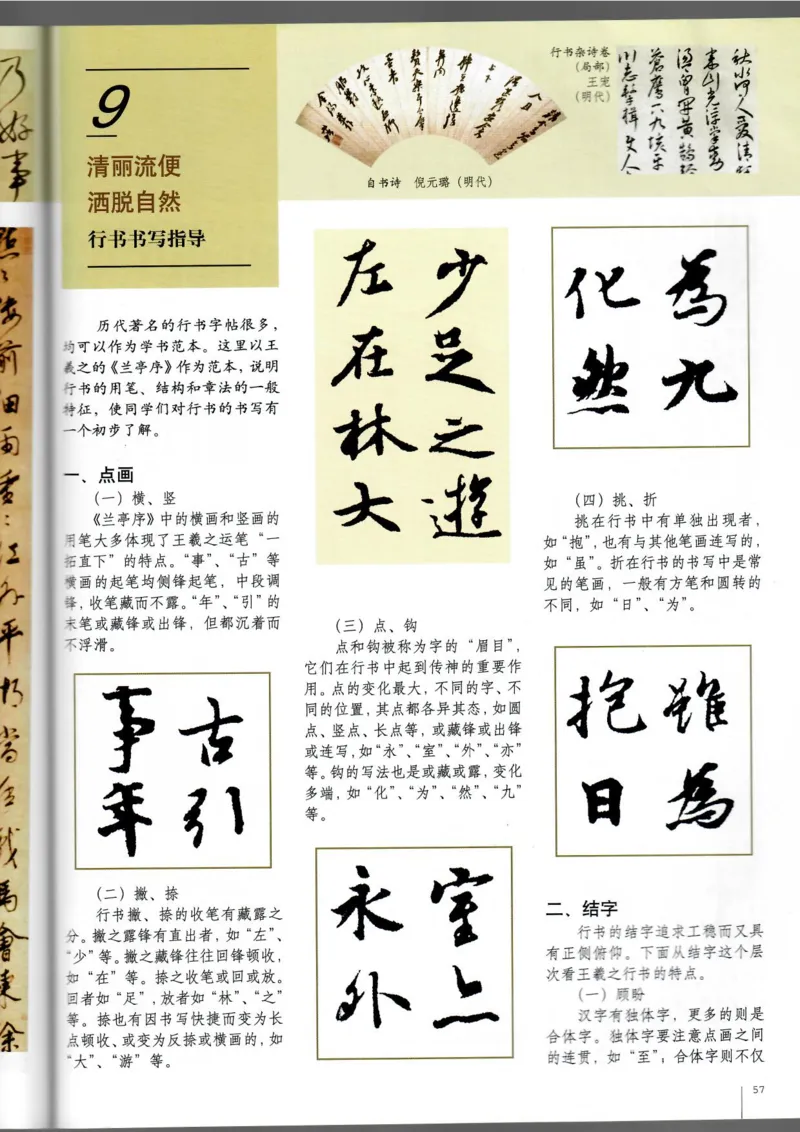 9
清丽流便
洒脱自然
行书书写指导
自书诗 倪元璐（明代）
行书杂诗卷
（局部）
王宠
（明代）
历代著名的行书字帖很多，
均可以作为学书范本。这里以王
羲之的《兰亭序》作为范本，说明
行书的用笔、结构和章法的一般
特征，使同学们对行书的书写有
一个初步了解。
一、点画
（一）横、竖
《兰亭序》中的横画和竖画的
用笔大多体现了王羲之运笔“一
拓直下”的特点。“事”、“古”等
横画的起笔均侧锋起笔，中段调
锋，收笔藏而不露。“年”、“引”的
末笔或藏锋或出锋，但都沉着而
不浮滑。
古引
事年
（二）撇、捺
行书撇、捺的收笔有藏露之
分。撇之露锋有直出者，如“左”、
“少”等。撇之藏锋往往回锋顿收，
如“在”等。捺之收笔或回或放。
回者如“足”，放者如“林”、“之”
等。捺也有因书写快捷而变为长
点顿收、或变为反捺或横画的，如
“大”、“游”等。
少足之遊
左在林大
（三）点、钩
点和钩被称为字的“眉目”，
它们在行书中起到传神的重要作
用。点的变化最大，不同的字、不
同的位置，其点都各异其态，如圆
点、竖点、长点等，或藏锋或出锋
或连写，如“永”、“室”、“外”、“亦”
等。钩的写法也是或藏或露，变化
多端，如“化”、“为”、“然”、“九”
等。
室亦
永外
為九
化然
（四）挑、折
挑在行书中有单独出现者，
如“抱”，也有与其他笔画连写的，
如“虽”。折在行书的书写中是常
见的笔画，一般有方笔和圆转的
不同，如“日”、“为”。
雖為
抱日
二、结字
行书的结字追求工稳而又具
有正侧俯仰。下面从结字这个层
次看王羲之行书的特点。
（一）顾盼
汉字有独体字，更多的则是
合体字。独体字要注意点画之间
的连贯，如“至”；合体字则不仅
57